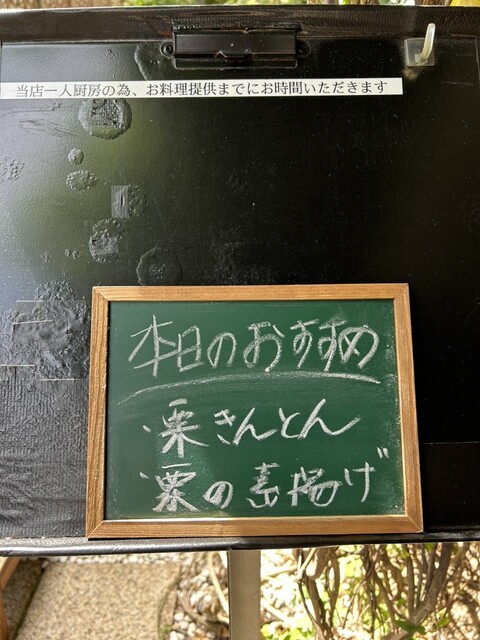 当店一人厨房の為、お料理提供までにお時間いただきます
本日のおすすめ
・栗きんとん
・栗の素揚げ